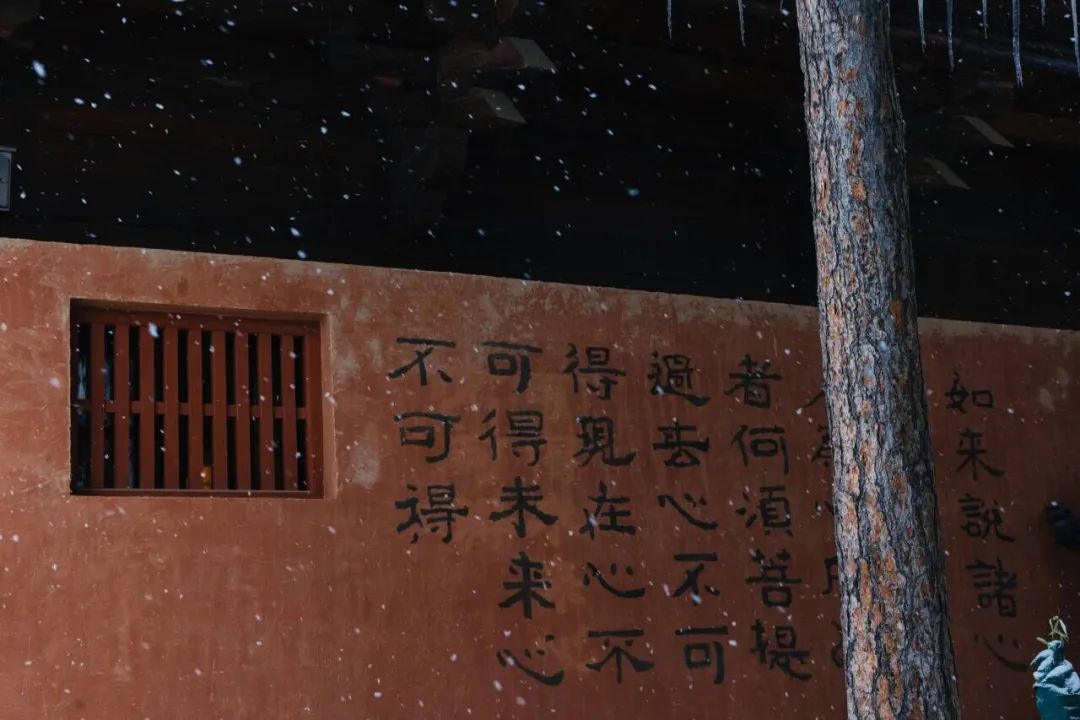 如来說諸心
者何須菩提
過去心不可
得現在心不
可得未来心
不可得